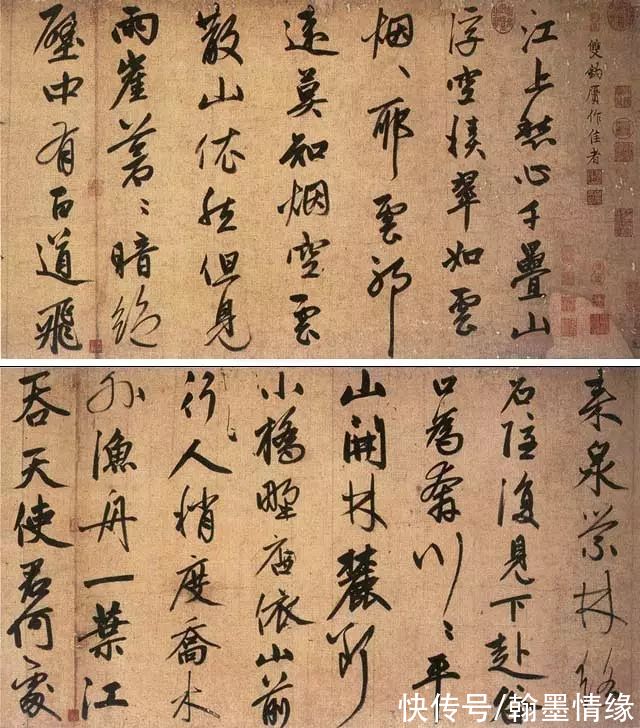 雙鈎贋作佳者
江上愁心千疊山
浮空積翠如雲
烟、耶雲耶
遠莫知烟空雲
散山依然但見
兩崖蒼、暗絕
壑中有百道飛
來泉縈林絡
石隱復見下赴谷
口為奔川、平
山開林麓斷
小橋野店依山前
行人稍度喬木
外漁舟一葉江
吞天使君何處
快传号/翰墨情缘